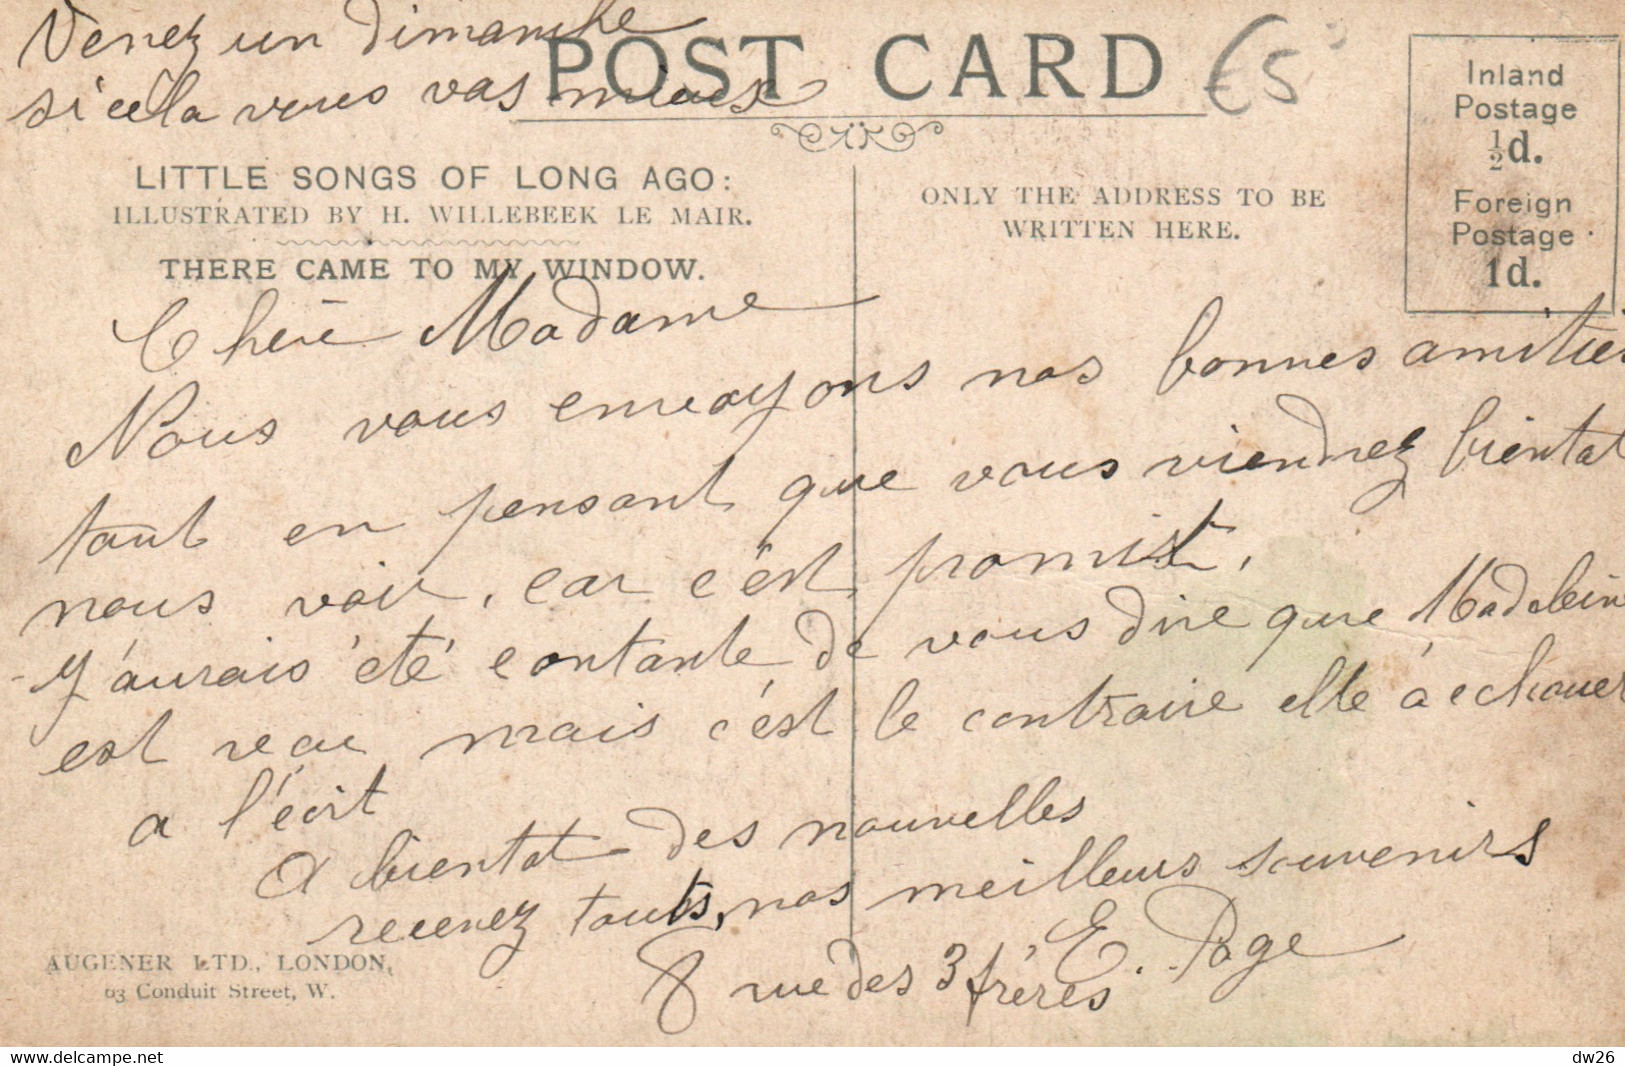 Venez un dimanche
si cela vous vas mieux
POST CARD
€5
Inland
Postage
½d.
Foreign
Postage
1d.
LITTLE SONGS OF LONG AGO:
ILLUSTRATED BY H. WILLEBEEK LE MAIR.
THERE CAME TO MY WINDOW.
ONLY THE ADDRESS TO BE
WRITTEN HERE.
Chère Madame
Nous vous envoyons nos bonnes amitiés
tout en pensant que vous viendrez bientat
nous voir, car c'est promist.
J'aurais été contante de vous dire que Madelein
est reçu mais c'est le contraire elle à echouer
a l'écrit
A bientat des nouvelles
recevez touts, nos meilleurs souvenirs
E. Page
8 rue des 3 frères
AUGENER LTD., LONDON,
63 Conduit Street, W.
delcampe.net
dw26